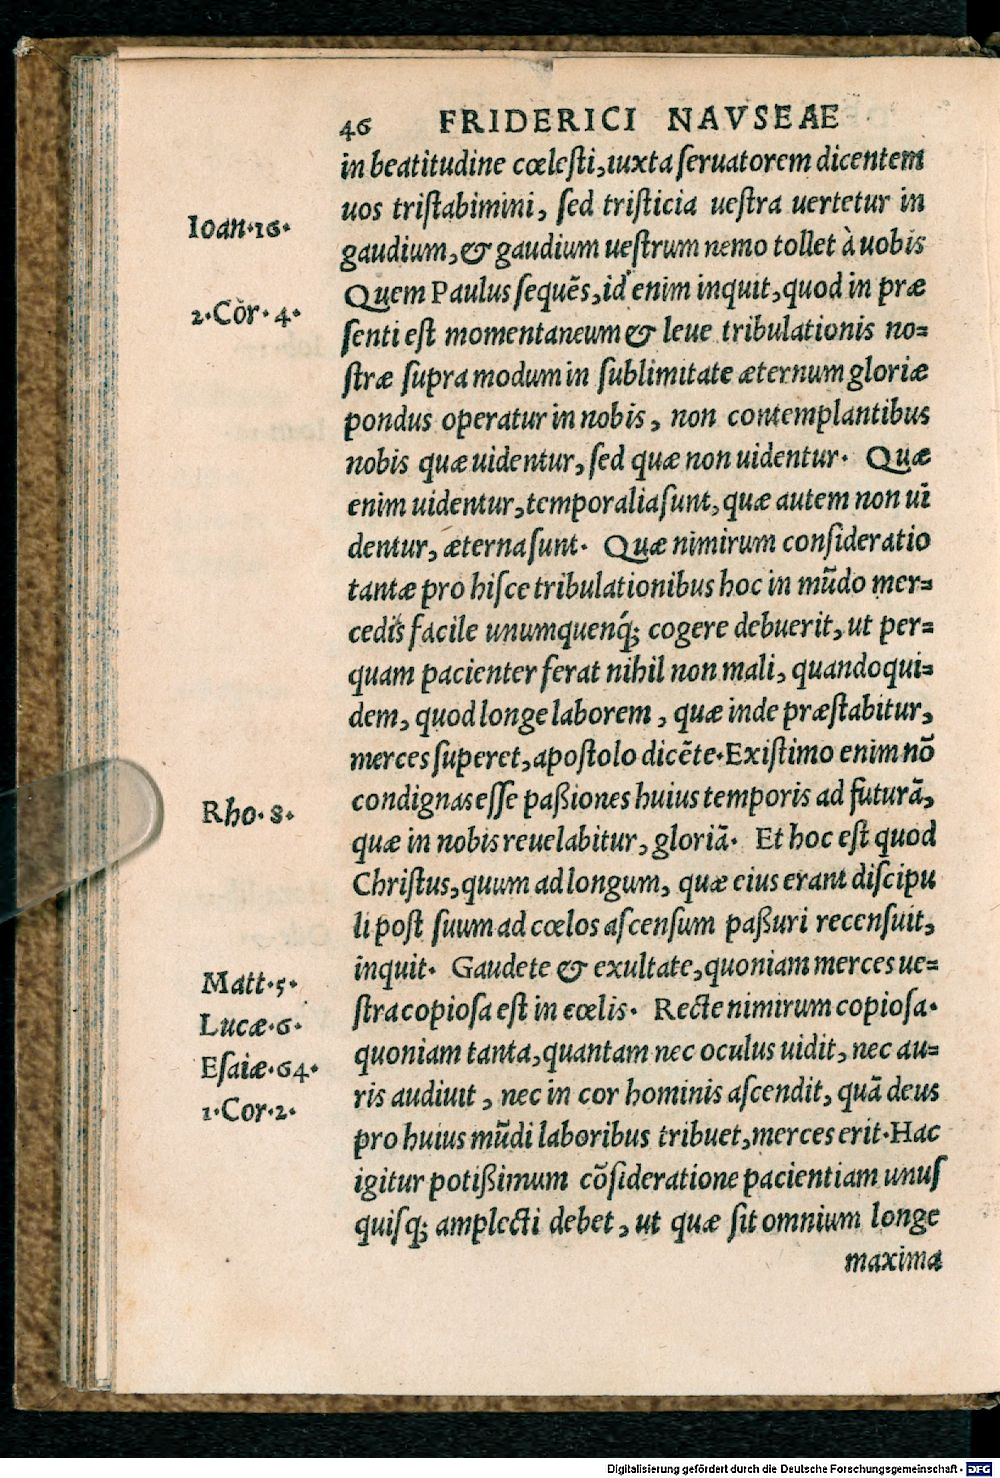 46 FRIDERICI NAVSEAE
in beatitudine cœlesti, iuxta seruatorem dicentem
uos tristabimini, sed tristicia uestra uertetur in
Ioan. 16.
gaudium, & gaudium uestrum nemo tollet à uobis
Quem Paulus sequēs, id enim inquit, quod in præ
2. Cor. 4.
senti est momentaneum & leue tribulationis no=
stræ supra modum in sublimitate æternum gloriæ
pondus operatur in nobis, non contemplantibus
nobis quæ uidentur, sed quæ non uidentur. Quæ
enim uidentur, temporalia sunt, quæ autem non ui
dentur, æterna sunt. Quæ nimirum consideratio
tantæ pro hisce tribulationibus hoc in mūdo mer=
cedis facile unumquenq́; cogere debuerit, ut per=
quam pacienter ferat nihil non mali, quandoqui=
dem, quod longe laborem, quæ inde præstabitur,
merces superet, apostolo dicēte. Existimo enim nō
condignas esse paßiones huius temporis ad futurā,
Rho. 8.
quæ in nobis reuelabitur, gloriā. Et hoc est quod
Christus, quum ad longum, quæ eius erant discipu
li post suum ad cœlos ascensum paßuri recensuit,
inquit. Gaudete & exultate, quoniam merces ue=
Matt. 5.
stra copiosa est in cœlis. Recte nimirum copiosa.
Lucæ. 6.
quoniam tanta, quantam nec oculus uidit, nec au=
Esaiæ. 64.
ris audiuit, nec in cor hominis ascendit, quā deus
1. Cor. 2.
pro huius mūdi laboribus tribuet, merces erit. Hac
igitur potißimum cōsideratione pacientiam unus
quisq; amplecti debet, ut quæ sit omnium longe
maxima
Digitalisierung gefördert durch die Deutsche Forschungsgemeinschaft - DFG